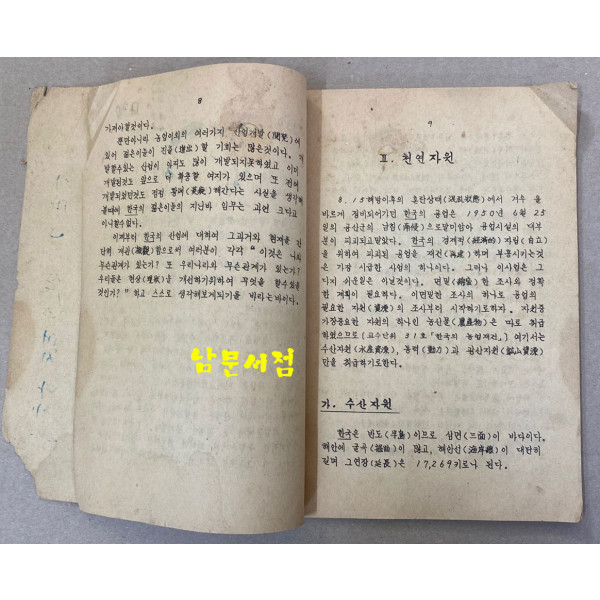 8
기저야할것이다.
뿐만아니라 농업이외의 여러가지 산업개발(開発)에
있어 젊은이들이 진출(進出)할 기회는 많은것이다. 개
발할수있는 산업이 아직도 많이 개발되지못하였고 이미
개발된것도 앞으로 더 확충할 여지가 있으며 또 전여
개발되었던것도 점점 황폐(荒廢)해간다는 사실을 생각
볼때에 한국의 젊은이들의 지난바 임무는 과연 크다고
아니할수없다.
이제부터 한국의 산업에 대하여 그과거와 현재를 간
단히 개관(槪觀)함으로써 여러분이 각각 "이것은 나와
무슨관계가 있는가? 또 우리나라와 무슨관계가 있는가?
우리들은 현상(現狀)을 개선하기위하여 무엇을 할수있을
것인가?" 하고 스스로 생각해보게되기를 바라는바이다.
남문서점
9
Ⅱ. 천연자원
8. 15해방이후의 혼란상태(混乱狀態)에서 겨우 올
바르게 정비되어가던 한국의 공업은 1950년 6월 25
일의 공산군의 남침(南侵)으로말미암아 공업시설의 대부
분이 파괴되고말았다. 한국의 경제적(経済的) 자립(自立)
을 위하여 파괴된 공업을 재건(再建)하며 부흥시키는것
은 가장 시급한 사업의 하나이다. 그러나 이사업은 그
다지 쉬운일은 아닐것이다. 면밀(綿密)한 조사와 정확
한 계획이 필요하다. 이면밀한 조사의 하나로 공업의
필요한 자원(資源)의 조사부터 시작하기로하자. 자원중
가장중요한 자원의 하나인 농산물(農產物)은 따로 취급
하였으므로[교수단위 31호「한국의 농업재건」] 여기서는
수산자원(水産資源), 동력(動力)과 광산자원(鑛山資源)
만을 취급하기로한다.
가. 수산자원
한국은 반도(半島)이므로 삼면(三面)이 바다이다.
해안에 굴곡(屈曲)이 많고, 해안선(海岸線)이 대단히
길며 그연장(延長)은 17,269키로나 된다.